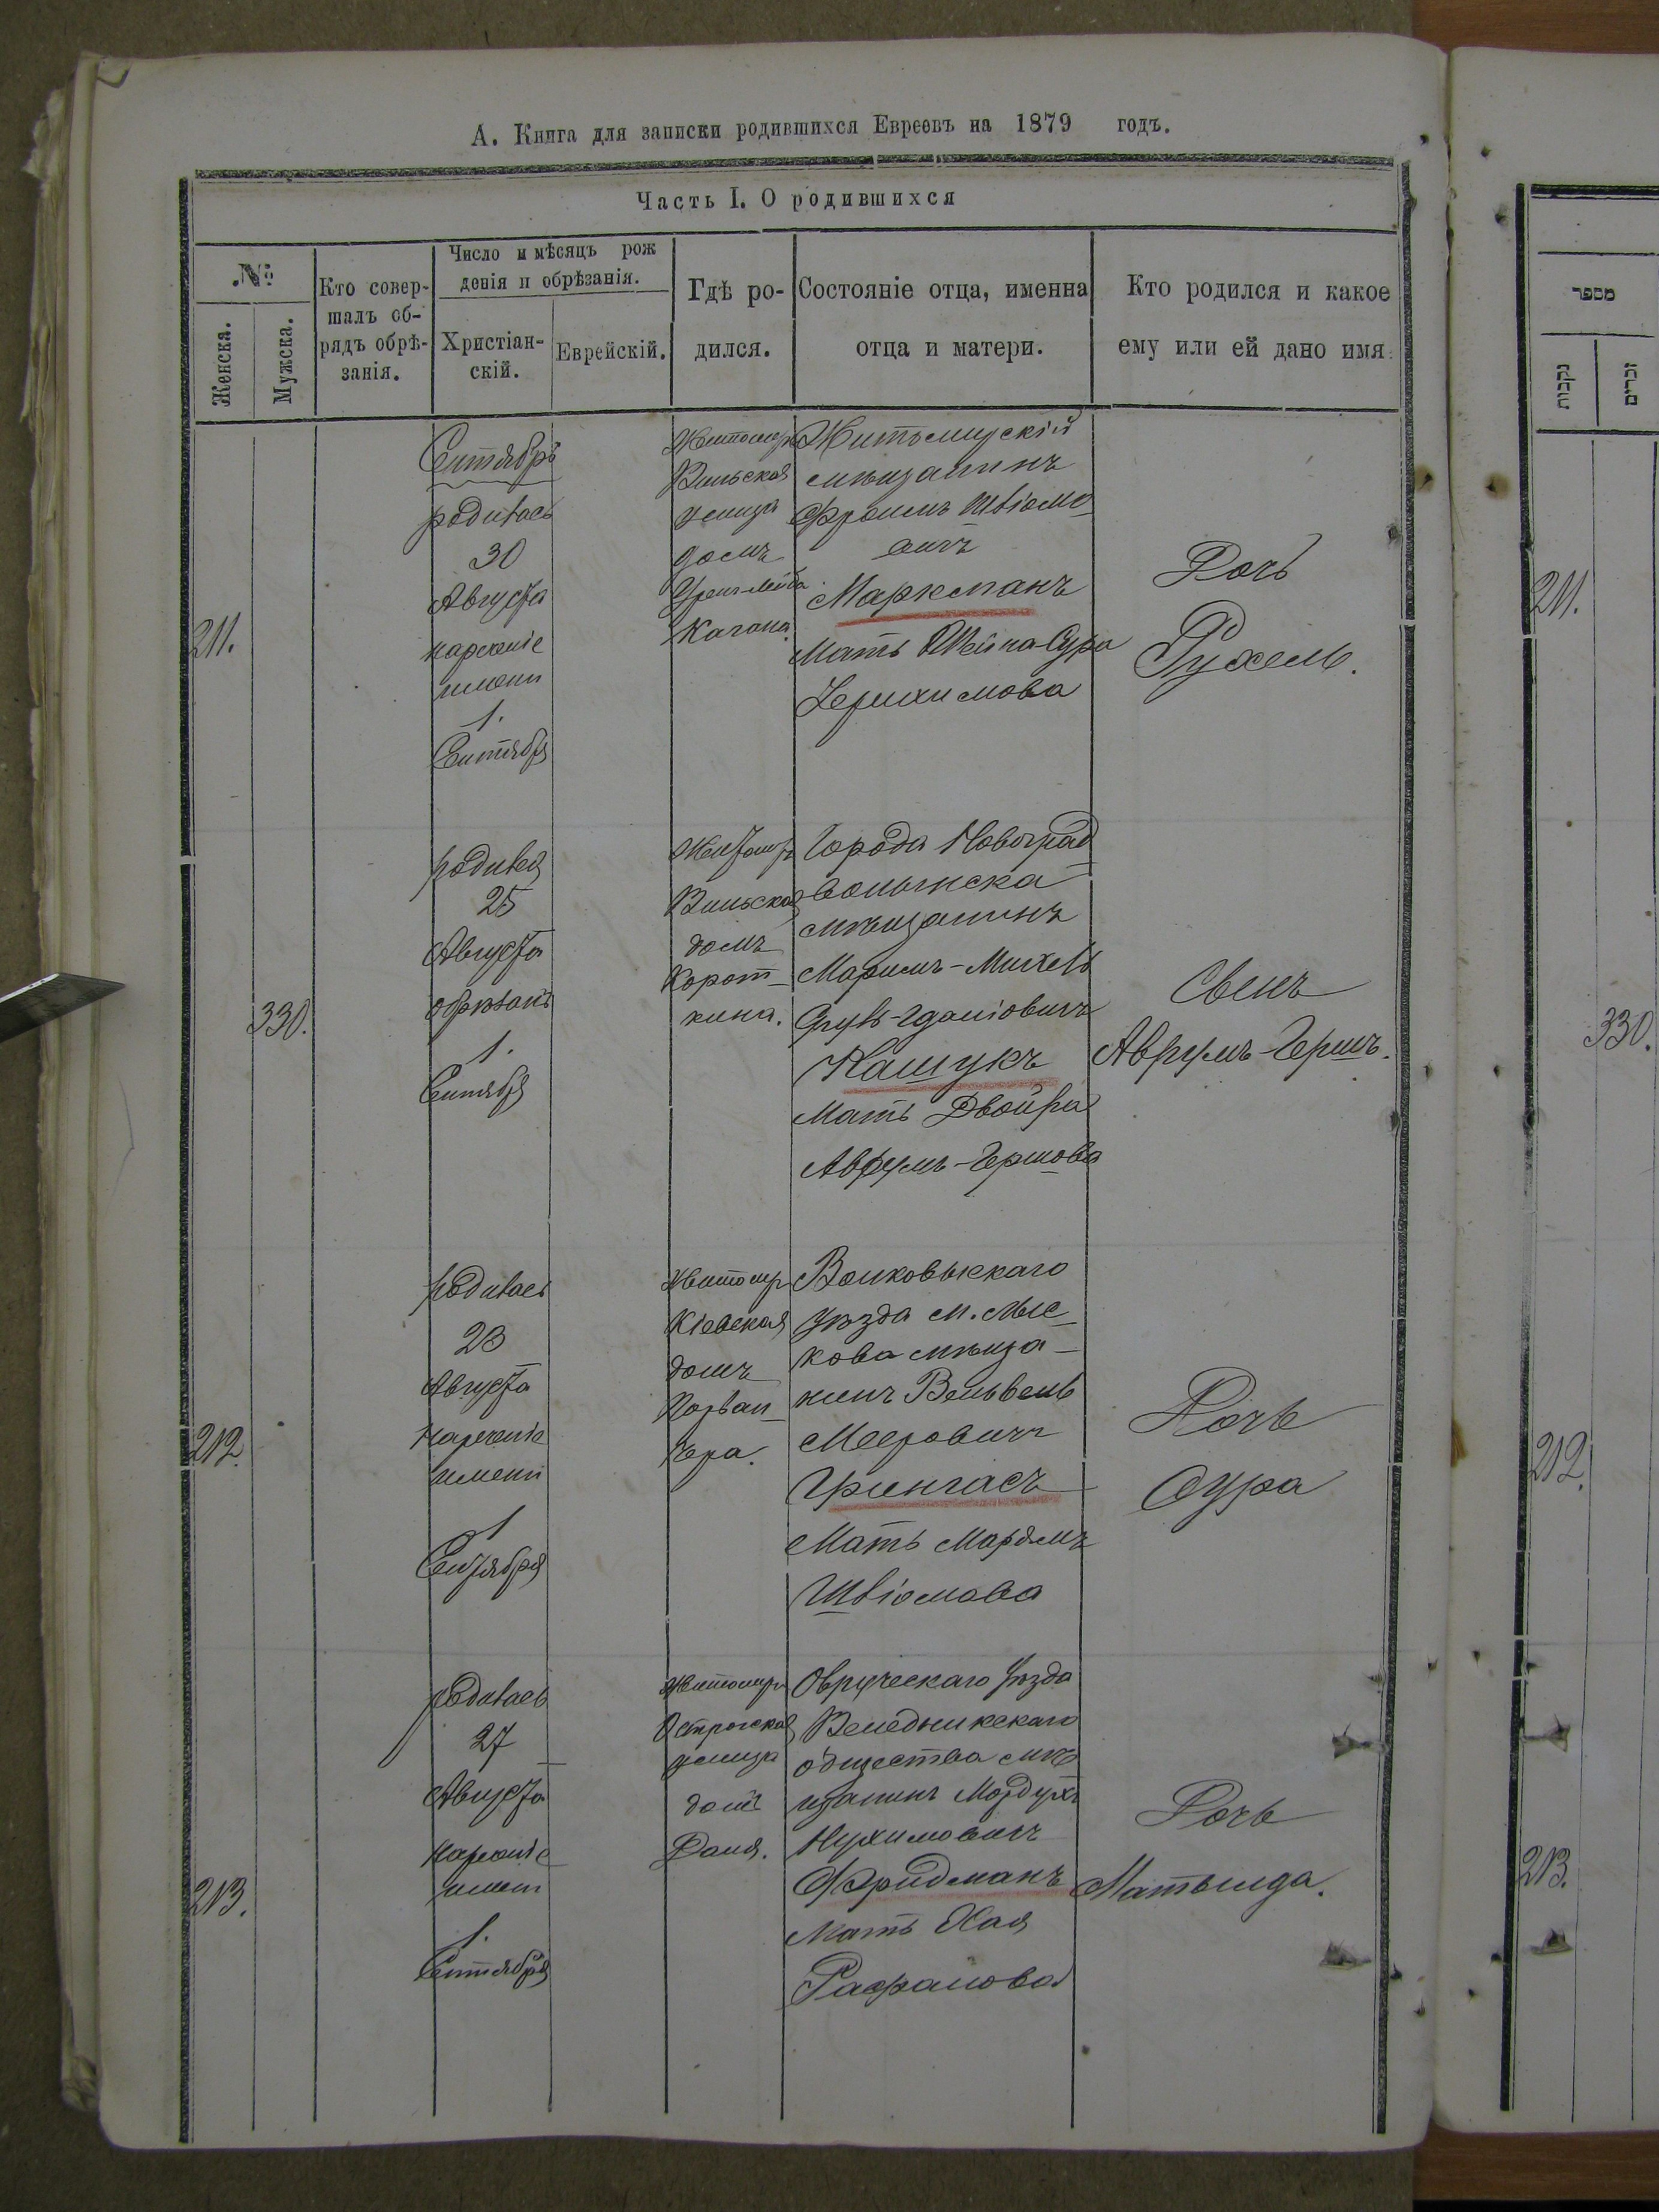 А. Книга для записки родившихся Евреевъ на 1879 годъ.
Часть I. О родившихся
№
Женска.
Мужска.
Кто совер-
шалъ об-
рядъ обрѣ-
занія.
Число и мѣсяцъ рож
денія и обрѣзанія.
Христіан-
скій.
Еврейскій.
Гдѣ ро-
дился.
Состояніе отца, именна
отца и матери.
Кто родился и какое
ему или ей дано имя
211.
Сентябрь
родилась
30
Августа
нареченіе
имени
1.
Сентября
Житомиръ
Вильская
улица
домъ
Кагана.
Житомирскій
мѣщанинъ
Фроимъ Шліомо-
вичъ
Маркманъ
Мать Шейна-Сура
Дочь
Рухель.
330.
родился
25
Августа
обрѣзанъ
1.
Сентября
Житомиръ
Вильская
домъ
Корот-
кина.
Города Новоград
волынска
мѣщанинъ
Маримъ-Михель
Кашукъ
Мать Двойра
Аврумъ-Гершова
Сынъ
Аврумъ-Гершъ.
212.
родилась
23
Августа
нареченіе
имени
1
Сентября
Житомиръ
Кіевская
домъ
Волковыскаго
уѣзда м. Мыс-
кова мѣща-
нинъ Вельвель
Мееровичъ
Грингасъ
Мать Марямъ
Шліомова
Дочь
Сура
213.
родилась
27
Августа
нареченіе
имени
1.
Сентября
Житомиръ
Острожская
улица
домъ
Овручскаго уѣзда
Веледникскаго
общества мѣ
щанинъ Мордухъ
Нухимовичъ
Фридманъ
Мать Хая
Рафалова
Дочь
Матыида.
מספר
נקבות
זכרים
211.
330.
212.
213.